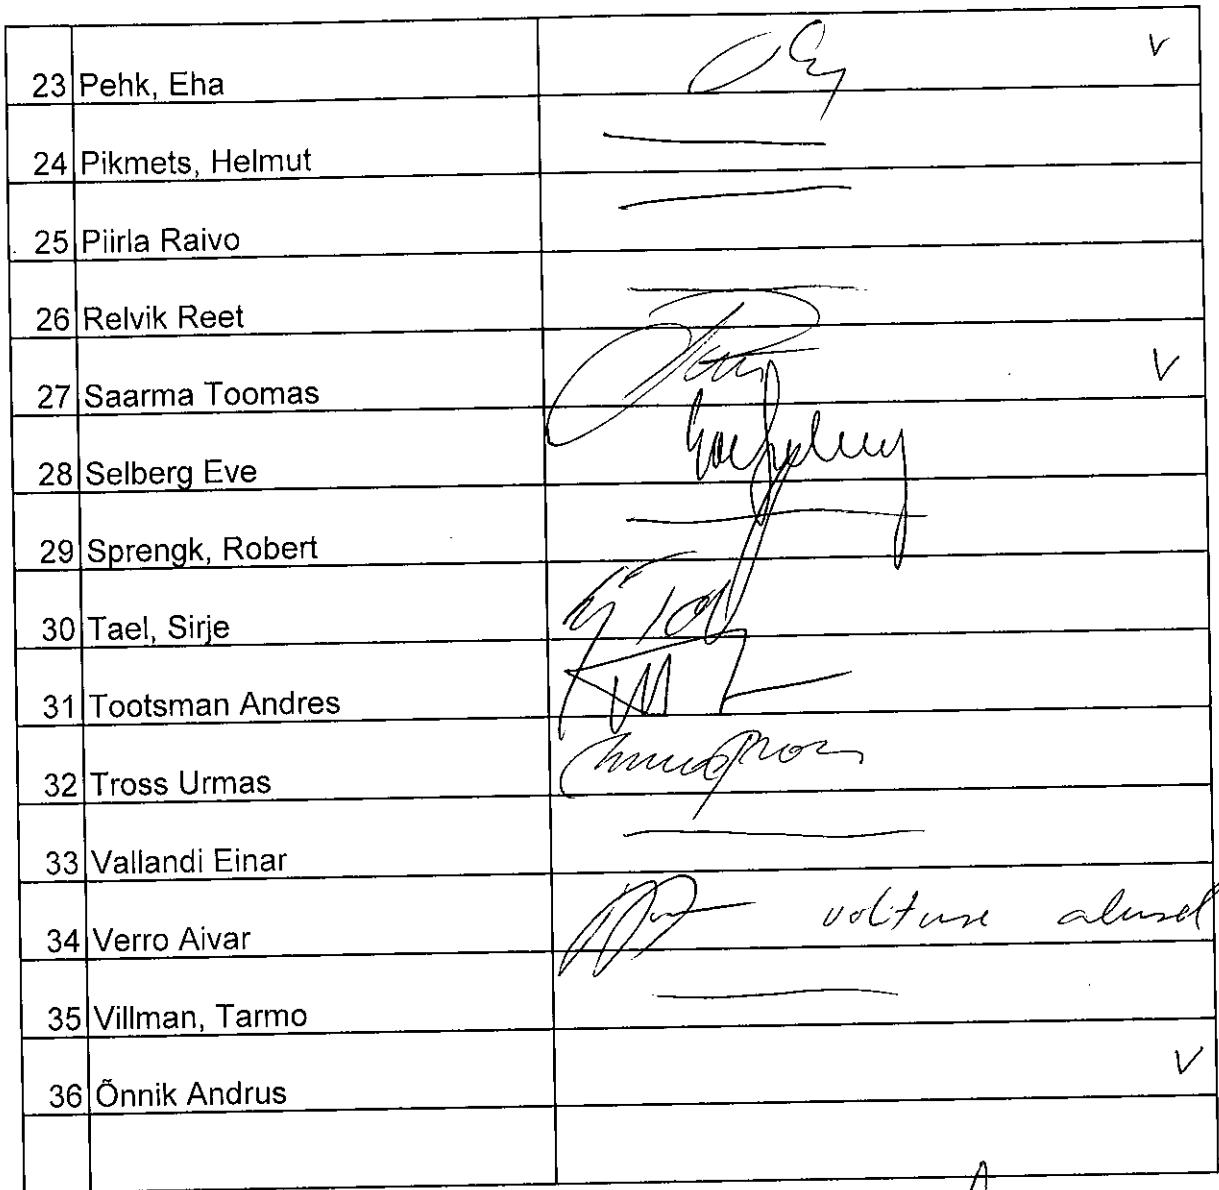 23 Pehk, Eha V
24 Pikmets, Helmut
25 Piirla Raivo
26 Relvik Reet
27 Saarma Toomas V
28 Selberg Eve
29 Sprengk, Robert
30 Tael, Sirje
31 Tootsman Andres
32 Tross Urmas
33 Vallandi Einar
34 Verro Aivar volituse alusel
35 Villman, Tarmo
36 Õnnik Andrus V